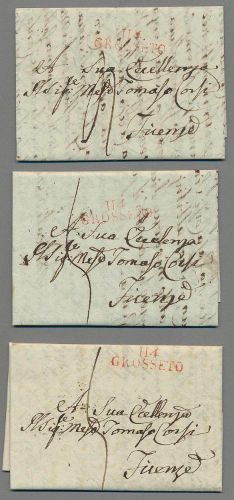 114
GROSSETO
A Sua Eccellenza
Il Sig.e Mes.o Tomaso Corsi
Firenze
114
GROSSETO
A Sua Eccellenza
Il Sig.e Mes.o Tomaso Corsi
Firenze
114
GROSSETO
A Sua Eccellenza
Il Sig.e Mes.o Tomaso Corsi
Firenze